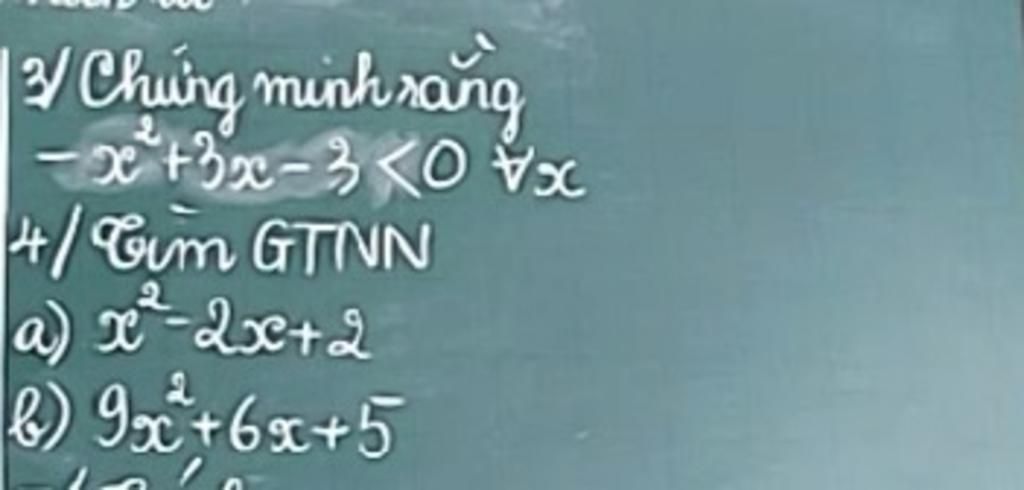 3/ Chứng minh rằng
-x²+3x-3<0 ∀x
4/ Tìm GTNN
a) x²-2x+2
b) 9x²+6x+5